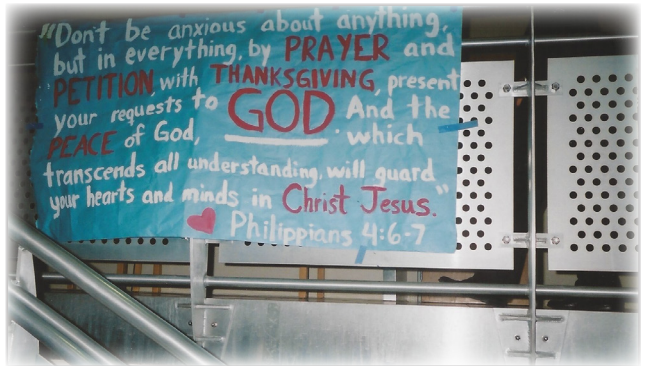 "Don't be anxious about anything,
but in everything, by PRAYER and
PETITION, with THANKSGIVING, present
your requests to GOD. And the
PEACE of God, which
transcends all understanding, will guard
your hearts and minds in Christ Jesus."
Philippians 4:6-7